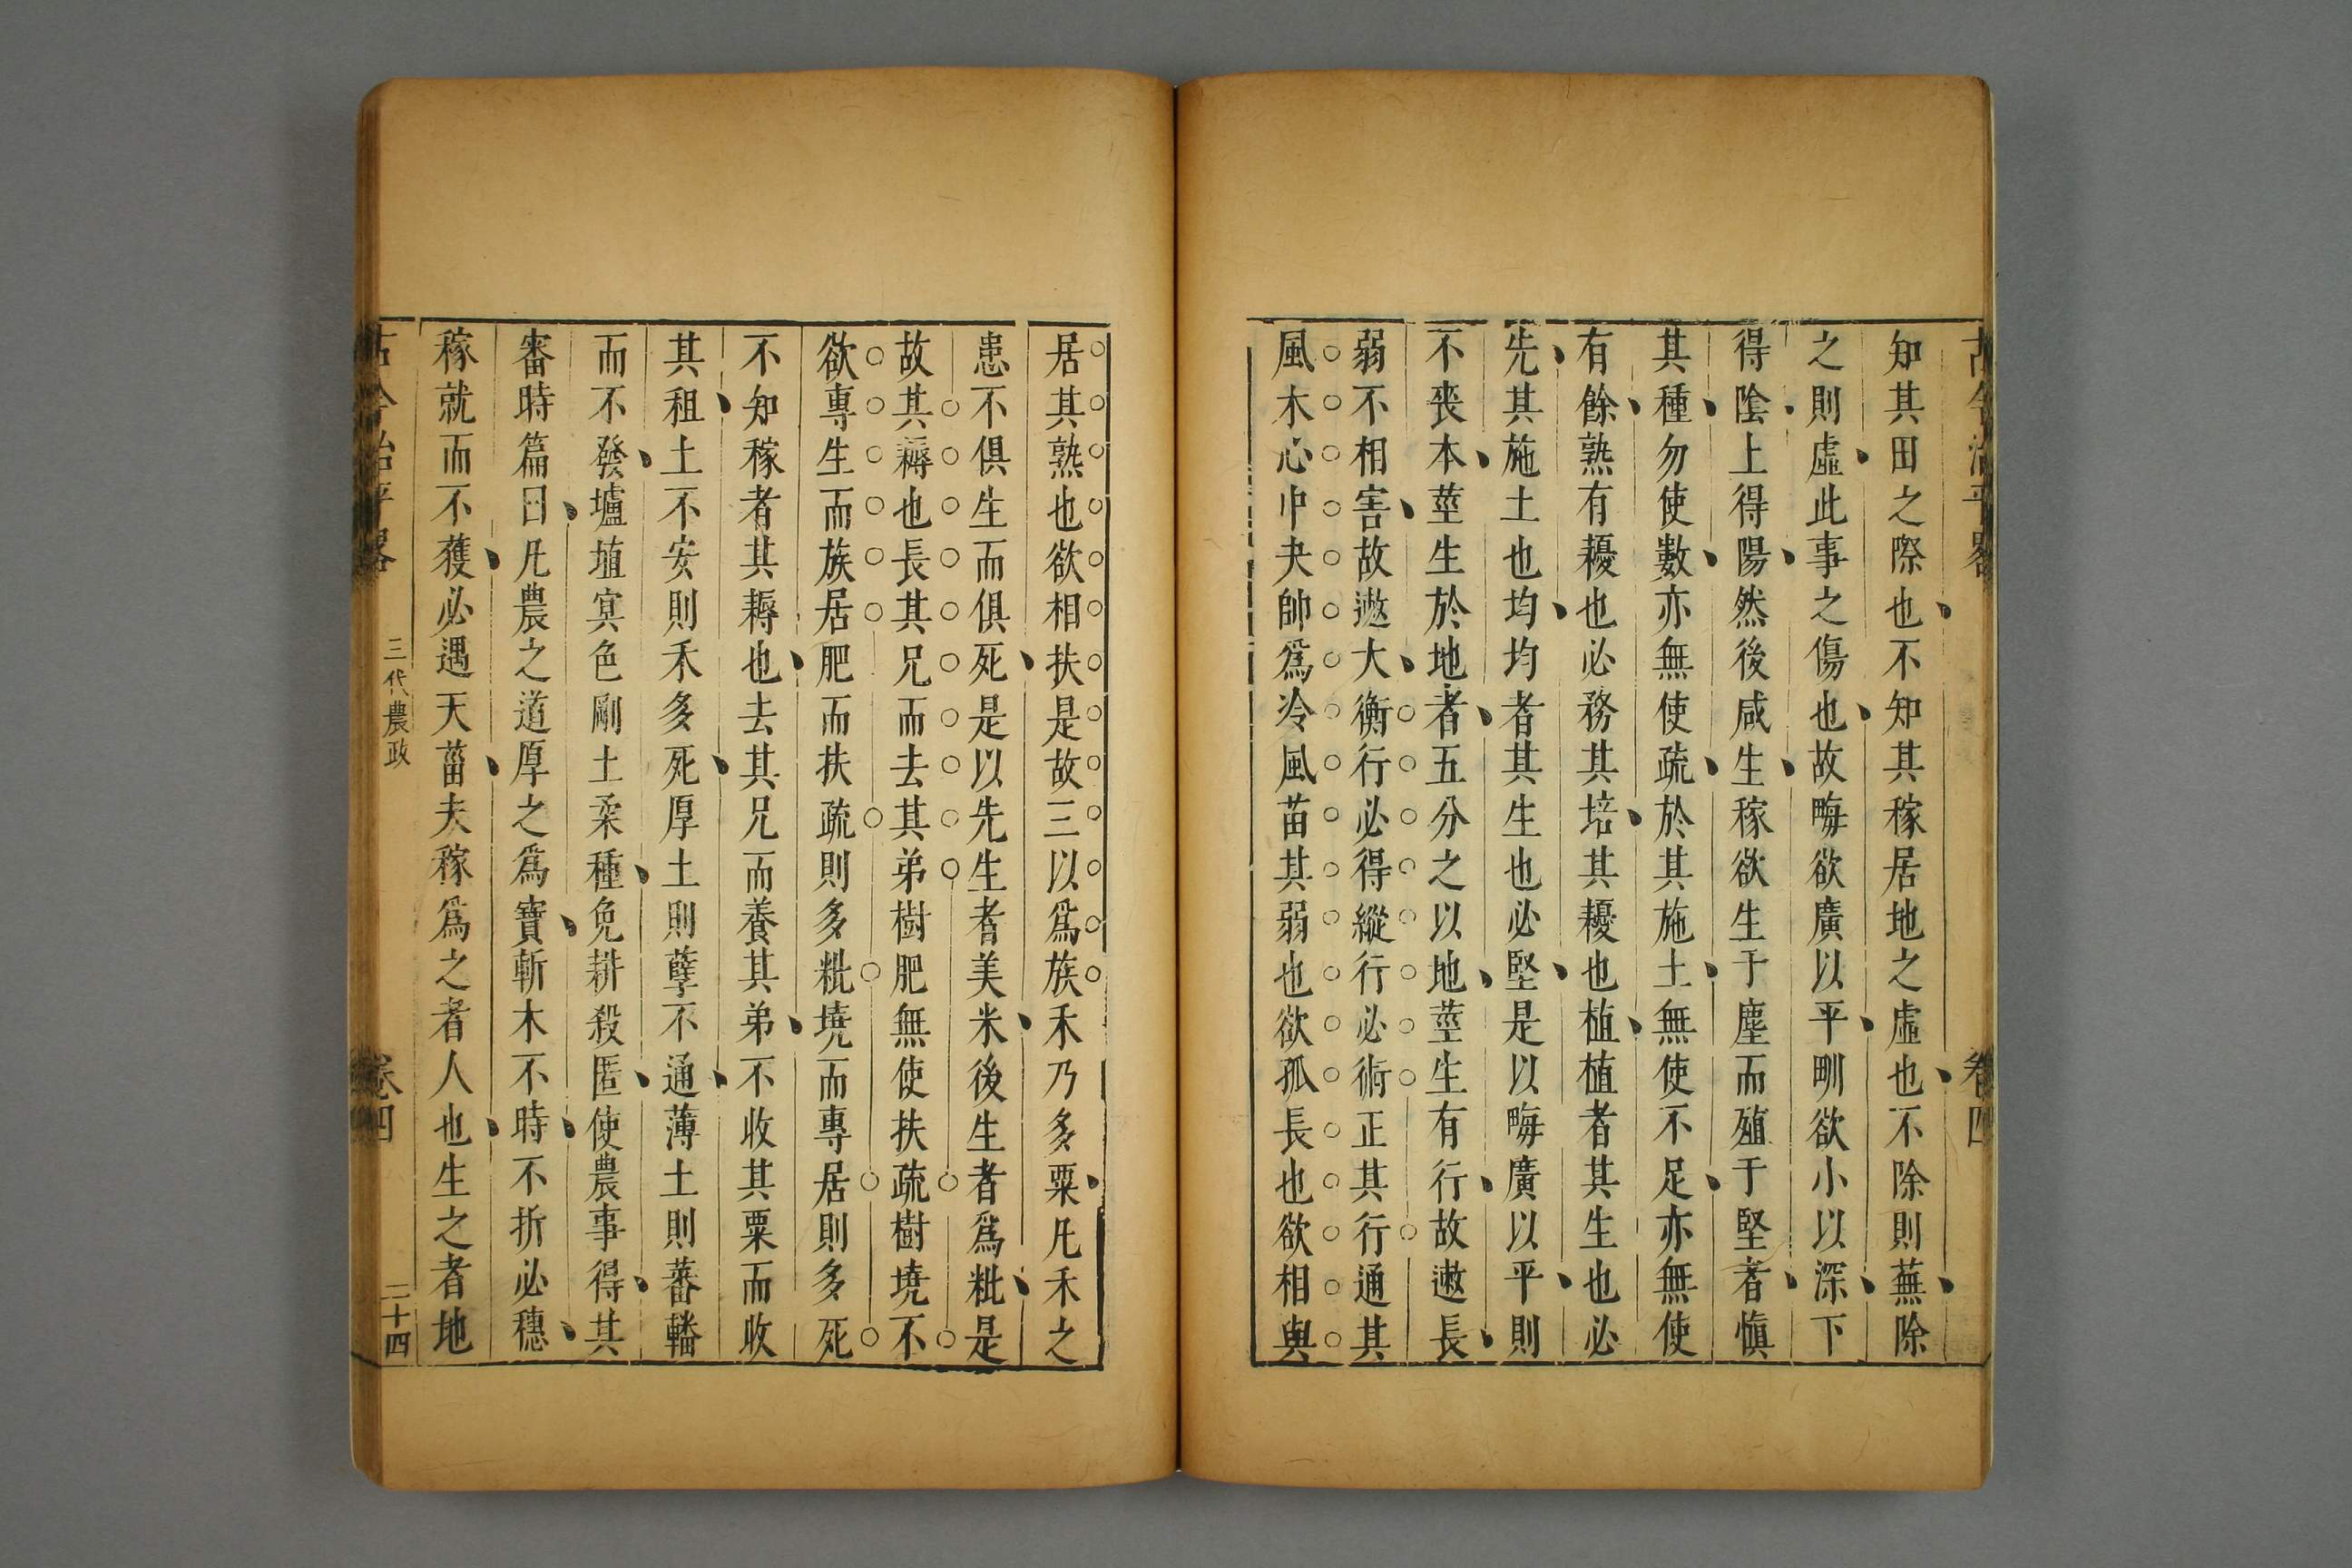 古今治平畧
卷四
知其田之際也不知其稼居地之虛也不除則蕪除
之則虛此事之傷也故畮欲廣以平甽欲小以深下
得陰上得陽然後咸生稼欲生于塵而殖于堅者愼
其種勿使數亦無使疏於其施土無使不足亦無使
有餘熟有耰也必務其培其耰也植植者其生也必
先其施土也均均者其生也必堅是以畮廣以平則
不喪本莖生於地者五分之以地莖生有行故遬長
弱不相害故遬大衡行必得縱行必術正其行通其
風木心中夬帥爲冷風苗其弱也欲孤長也欲相與
居其熟也欲相扶是故三以爲族禾乃多粟凡禾之
患不俱生而俱死是以先生者美米後生者爲粃是
故其耨也長其兄而去其弟樹肥無使扶疏樹墝不
欲專生而族居肥而扶疏則多粃墝而專居則多死
不知稼者其耨也去其兄而養其弟不收其粟而收
其租土不安則禾多死厚土則孽不通薄土則蕃轓
而不發壚埴冥色剛土柔種免耕殺匿使農事得其
審時篇曰凡農之道厚之爲寶斬木不時不折必穗
稼就而不獲必遇天菑夫稼爲之者人也生之者地
古今治平畧
三代農政
卷四
二十四